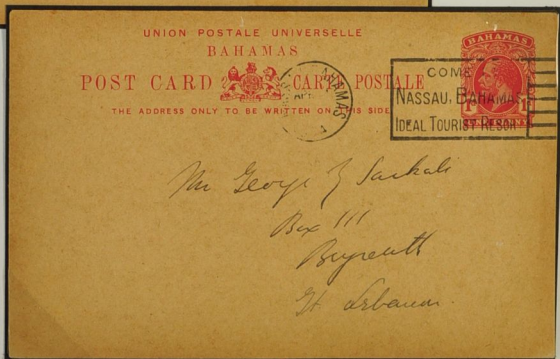 UNION POSTALE UNIVERSELLE
BAHAMAS
POST CARD CARTE POSTALE
THE ADDRESS ONLY TO BE WRITTEN ON THIS SIDE
BAHAMAS
COME
NASSAU, BAHAMAS
IDEAL TOURIST RESORT
BAHAMAS
Mr George J Sarkali
Box 111
Beyrouth
Gt Lebanon.